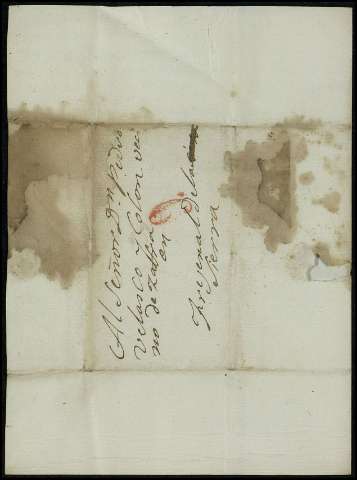 Al Señor Dn. Pedro
Velasco y Colon veci
no de Zafra
en
Frejenal de la
Sierra